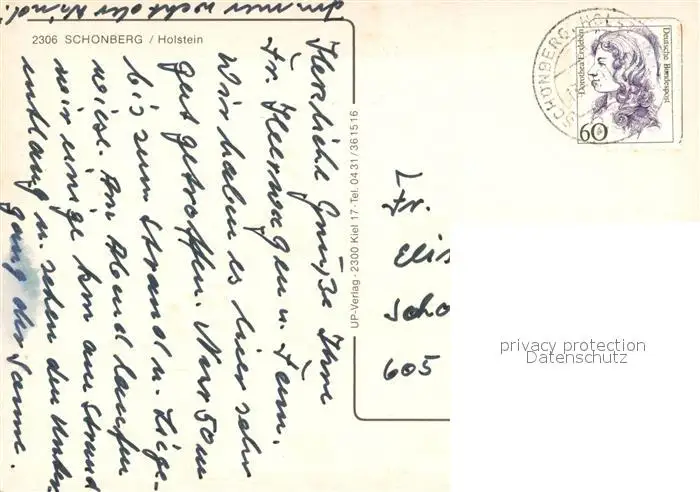 2306 SCHÖNBERG / Holstein
Herzliche Grüße Ihre
Fr. Heerwagen u. Fam.
Wir haben es hier sehr
gut getroffen. Nur 50 m
bis zum Strand u. Liege-
wiese. Am Abend laufen
wir einige km am Strand
entlang u. sehen den Unter
gang der Sonne.
immer
UP-Verlag · 2300 Kiel 17 · Tel. 04 31 / 36 15 16
SCHÖNBERG, HOLST
Dorothea Erxleben
Deutsche Bundespost
60
Fr.
Elis
Scho
605
privacy protection
Datenschutz